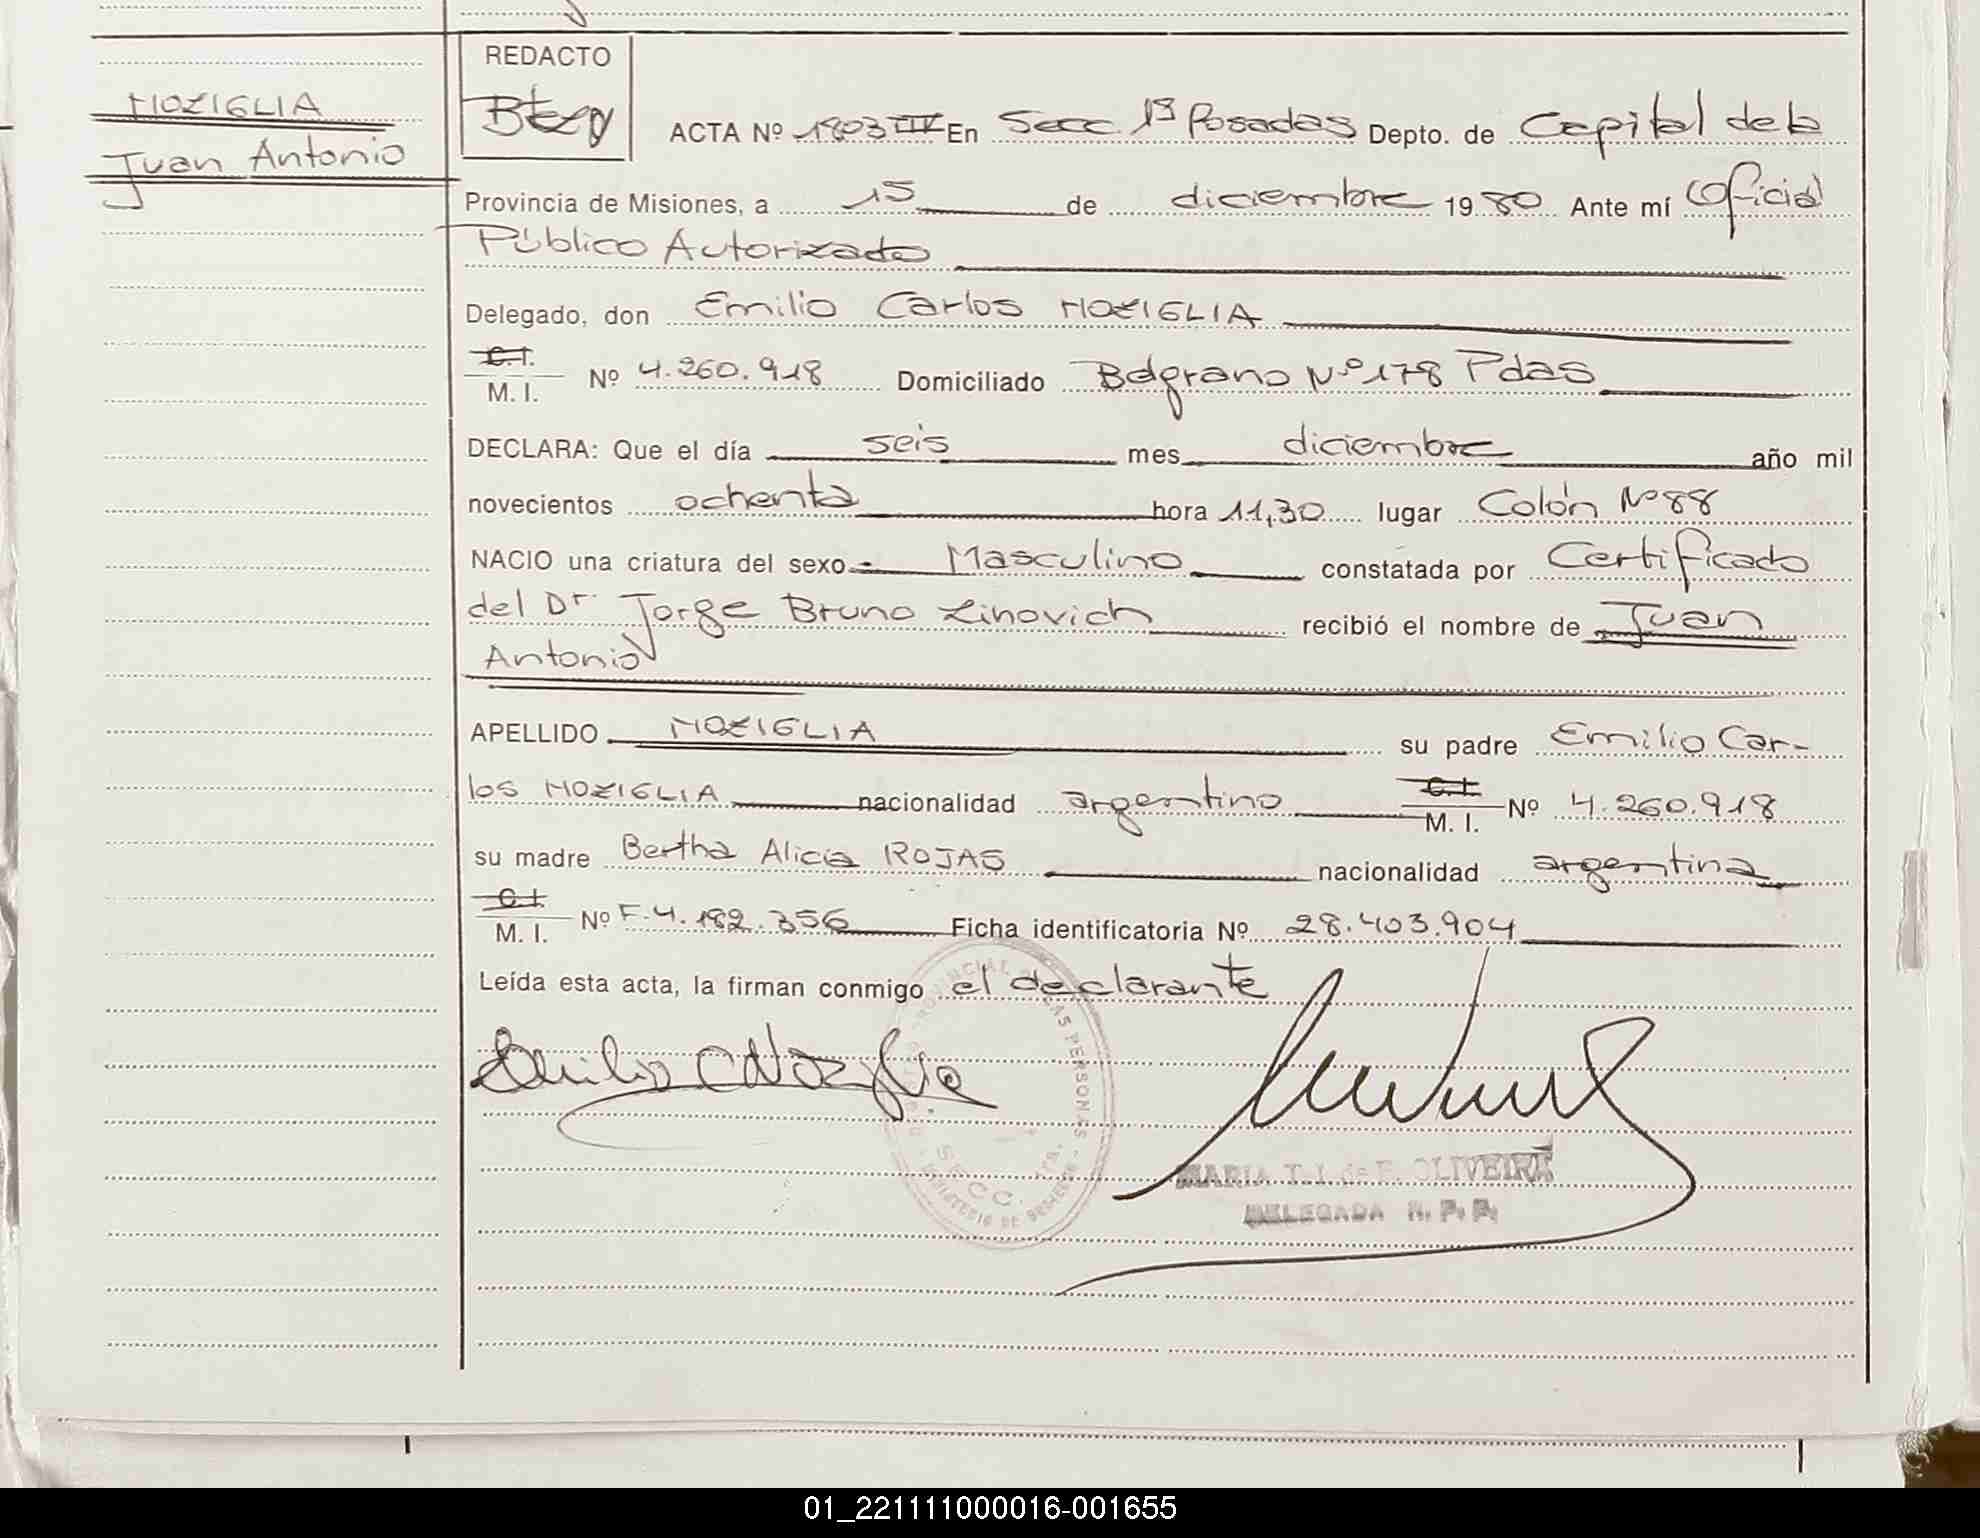 MOZIGLIA
Juan Antonio
REDACTO
ACTA Nº 1803 IV En Secc. 1ª Posadas Depto. de Capital de la
Provincia de Misiones, a 15 de diciembre 1980 Ante mí Oficial
Público Autorizado
Delegado, don Emilio Carlos MOZIGLIA
C.I.
M. I. Nº 4.260.918 Domiciliado Belgrano Nº 178 Pdas
DECLARA: Que el día seis mes diciembre año mil
novecientos ochenta hora 11,30 lugar Colón Nº 88
NACIO una criatura del sexo Masculino constatada por Certificado
del Dr. Jorge Bruno Zinovich recibió el nombre de Juan
Antonio
APELLIDO MOZIGLIA su padre Emilio Car-
los MOZIGLIA nacionalidad argentino C.I. M. I. Nº 4.260.918
su madre Bertha Alicia ROJAS nacionalidad argentina
C.I.
M. I. Nº F.4.182.356 Ficha identificatoria Nº 28.403.904
Leída esta acta, la firman conmigo el declarante
PROVINCIAL DE LAS PERSONAS
SECC. 1ra.
MINISTERIO DE GOBIERNO
MARIA T. I. de F. OLIVEIRA
DELEGADA R. P. P.
01_221111000016-001655